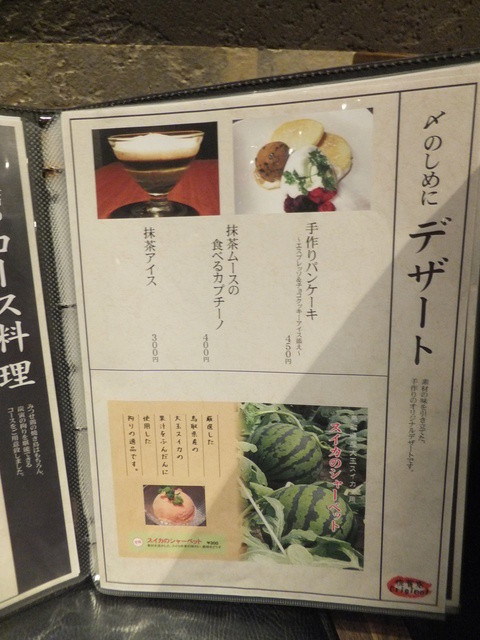 〆のしめに デザート
素材の味を引き立てた、
手作りのオリジナルデザートです。
手作りパンケーキ
〜エスプレッソ&チョコクッキーアイス添え〜
450円
抹茶ムースの
食べるカプチーノ
400円
抹茶アイス
300円
大玉スイカ
スイカのシャーベット
厳選した
鳥取県産の
大玉スイカの
果汁をふんだんに
使用した
拘りの逸品です。
スイカのシャーベット
コース料理
みつせ鶏の焼き鳥はもちろん、
コースをご用意致しました。